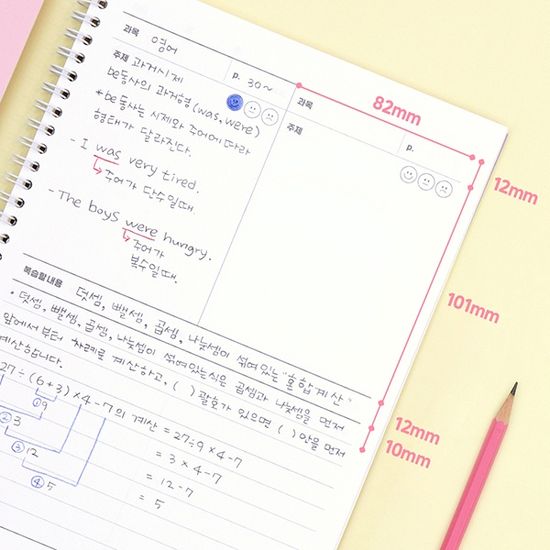 과목 영어
주제 과거시제
p. 30~
be동사의 과거형 (was, were)
*be동사는 시제와 주어에 따라
형태가 달라진다.
- I was very tired.
↳주어가 단수일때
- The boys were hungry.
↳주어가
복수일때.
과목
주제
p.
82mm
12mm
101mm
12mm
10mm
복습할내용 덧셈, 뺄셈, 곱셈, 나눗셈이 섞여있는 "혼합계산"
• 덧셈, 뺄셈, 곱셈, 나눗셈이 섞여있는식은 곱셈과 나눗셈을 먼저
앞에서부터 차례로 계산하고, ( ) 괄호가 있으면 ( ) 안을 먼저
계산합니다.
27÷(6+3)×4-7의 계산 = 27÷9×4-7
= 3×4-7
= 12-7
= 5
①9
②3
③12
④5